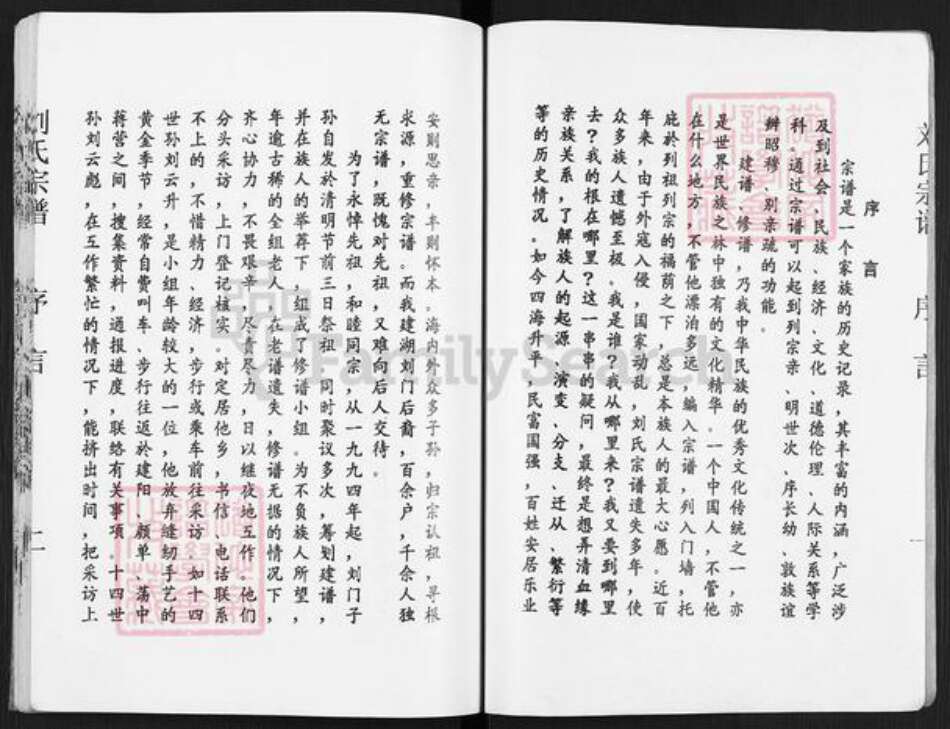 序言
宗谱是一个家族的历史记录，其丰富的内涵，广泛涉
及到社会、民族、经济、文化、道德伦理、人际关系等学
科，通过宗谱可以起到列宗亲、明世次、序长幼、敦族谊
辨昭穆、别亲疏的功能。
建谱、修谱，乃我中华民族的优秀文化传统之一，亦
是世界民族之林中独有的文化精华。一个中国人，不管他
在什么地方，不管他漂泊多远，编入宗谱，列入门墙，托
庇於列祖列宗的福荫之下，总是本族人的最大心愿。近百
年来，由于外寇入侵，国家动乱，刘氏宗谱遗失多年，使
众多族人遗憾至极。我是谁？我从哪里来？我又要到哪里
去？我的根在哪里？这一串串的疑问，最终是想弄清血缘
亲族关系，了解族人的起源、演变、分支、迁从、繁衍等
等的历史情况。如今四海升平，民富国强，百姓安居乐业
刘氏宗谱
序言
一
安则思亲，丰则怀本。海内外众多子孙，归宗认祖，寻根
求源，重修宗谱。而我建湖刘门后裔，百余户，千余人独
无宗谱，既愧对先祖，又难向后人交待。
为了永悼先祖，和睦同宗，从一九九四年起，刘门子
孙自发於清明节前三日祭祖，同时聚议多次，筹划建谱，
并在族人的举荐下，组成了修谱小组。为不负族人所望，
年逾古稀的全组老人，在老谱遗失，修谱无据的情况下，
齐心协力，不畏艰辛，尽责尽力，日以继夜地工作。他们
分头采访，上门登记核实。对定居他乡，书信、电话联系
不上的，不惜精力、经济，步行或乘车前往采访。如十四
世孙刘云升，是小组年龄较大的一位，他放弃缝纫手艺的
黄金季节，经常自费叫车、步行往返於建阳、颜单、荡中
蒋营之间，搜集资料，通报进度，联络有关事项。十四世
孙刘云彪，在互作繁忙的情况下，能挤出时间，把采访上
刘氏宗谱
序言
二
FamilySearch